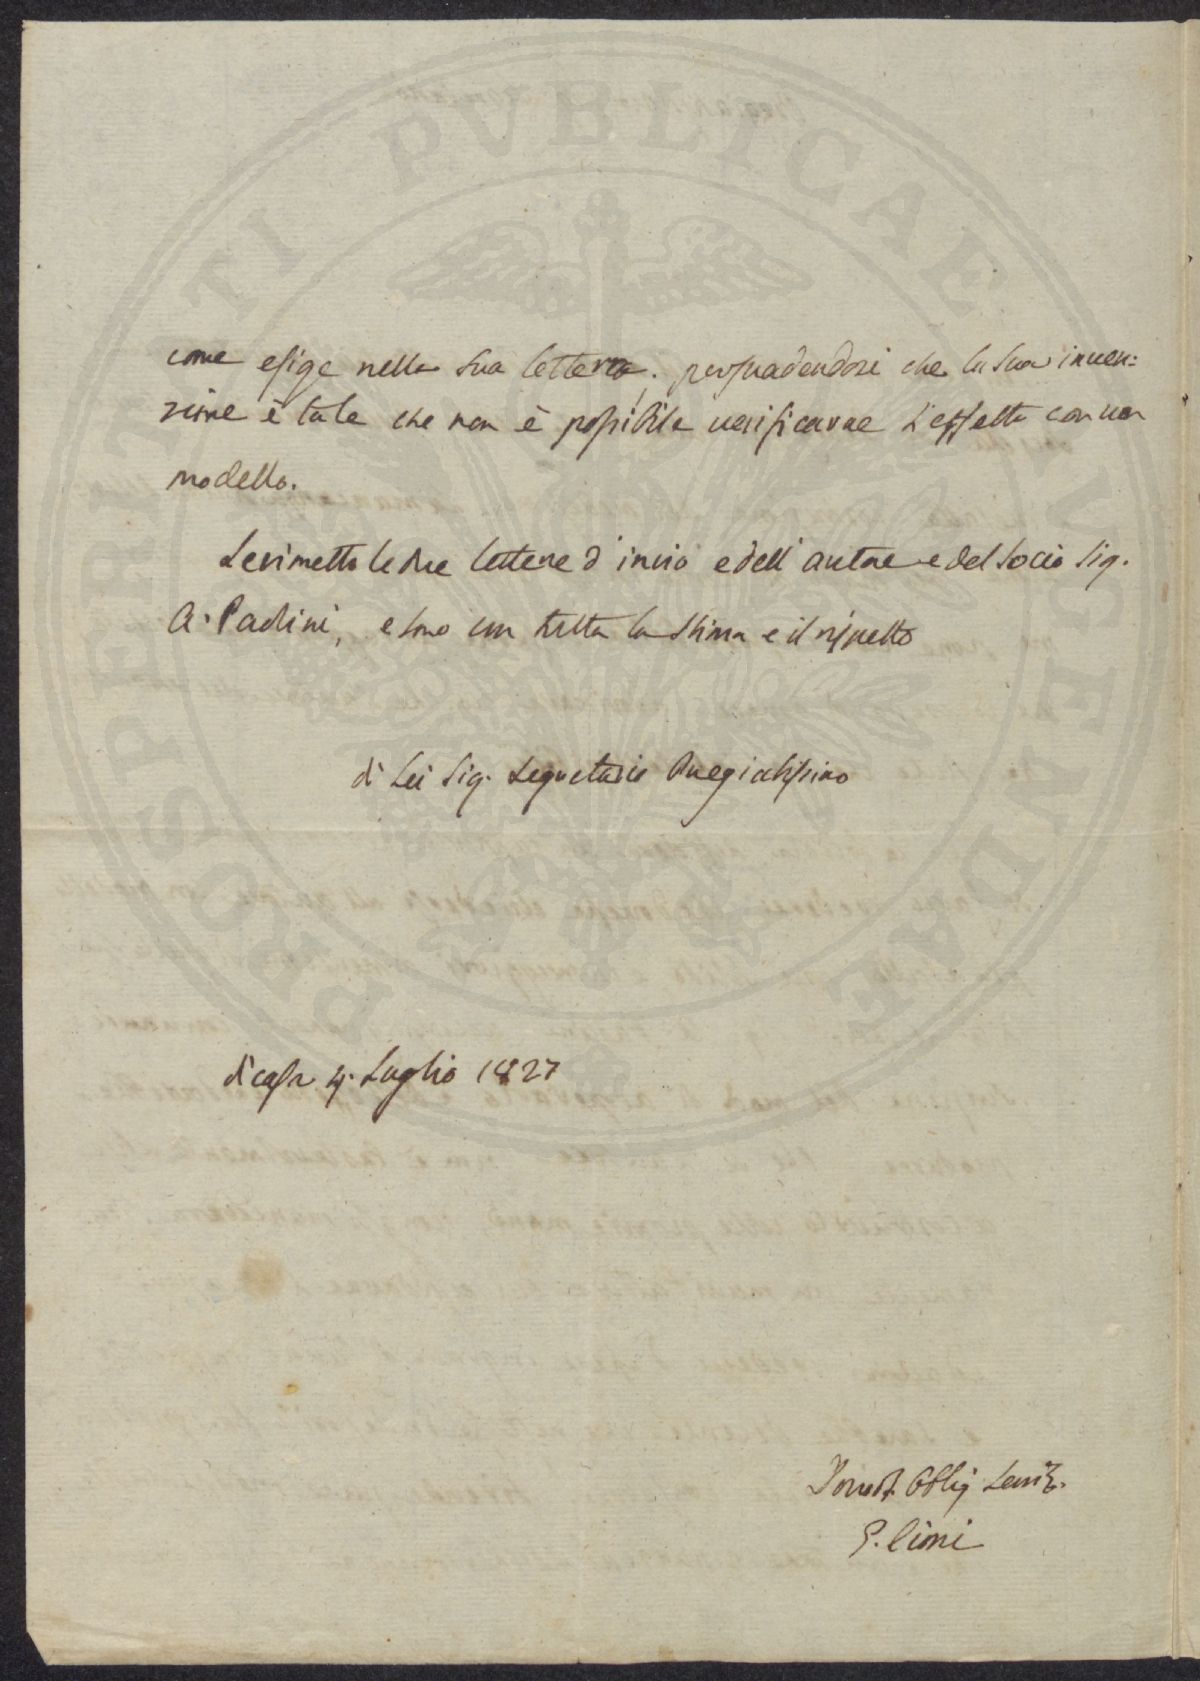 PROSPERITATI PUBLICAE AUGENDAE
come esige nella sua lettera, persuadendosi che la sua inven:
zione è tale che non è possibile verificarne l'effetto con un
modello.
Le rimetto le due lettere d'invio e dell'autore e del Socio Sig.
A. Paolini, e sono con tutta la stima e il rispetto
di Lei Sig. Segretario Pregiatissimo
di casa 4. Luglio 1827
Obblig